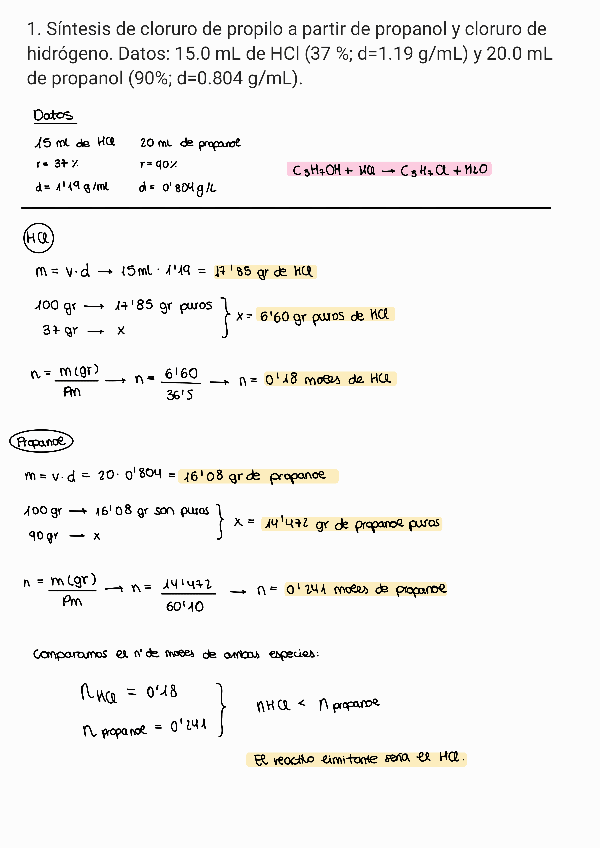 1. Síntesis de cloruro de propilo a partir de propanol y cloruro de
hidrógeno. Datos: 15.0 mL de HCl (37 %; d=1.19 g/mL) y 20.0 mL
de propanol (90%; d=0.804 g/mL).
Datos
15 ml de HCl 20 mL de propanol
r= 37 % r= 90%
d= 1'19 g/ml d= 0'804 g/L
C3H7OH + HCl → C3H7Cl + H2O
HCl
m = v·d → 15ml · 1'19 = 17'85 gr de HCl
100 gr → 17'85 gr puros
37 gr → x
x= 6'60 gr puros de HCl
n = m(gr)/Pm → n = 6'60/36'5 → n = 0'18 moles de HCl
Propanol
m = v·d = 20 · 0'804 = 16'08 gr de propanol
100 gr → 16'08 gr son puros
90 gr → x
x = 14'472 gr de propanol puros
n = m(gr)/Pm → n = 14'472/60'10 → n = 0'241 moles de propanol
Comparamos el nº de moles de ambas especies:
nHCl = 0'18
n propanol = 0'241
nHCl < n propanol
El reactivo limitante sería el HCl.